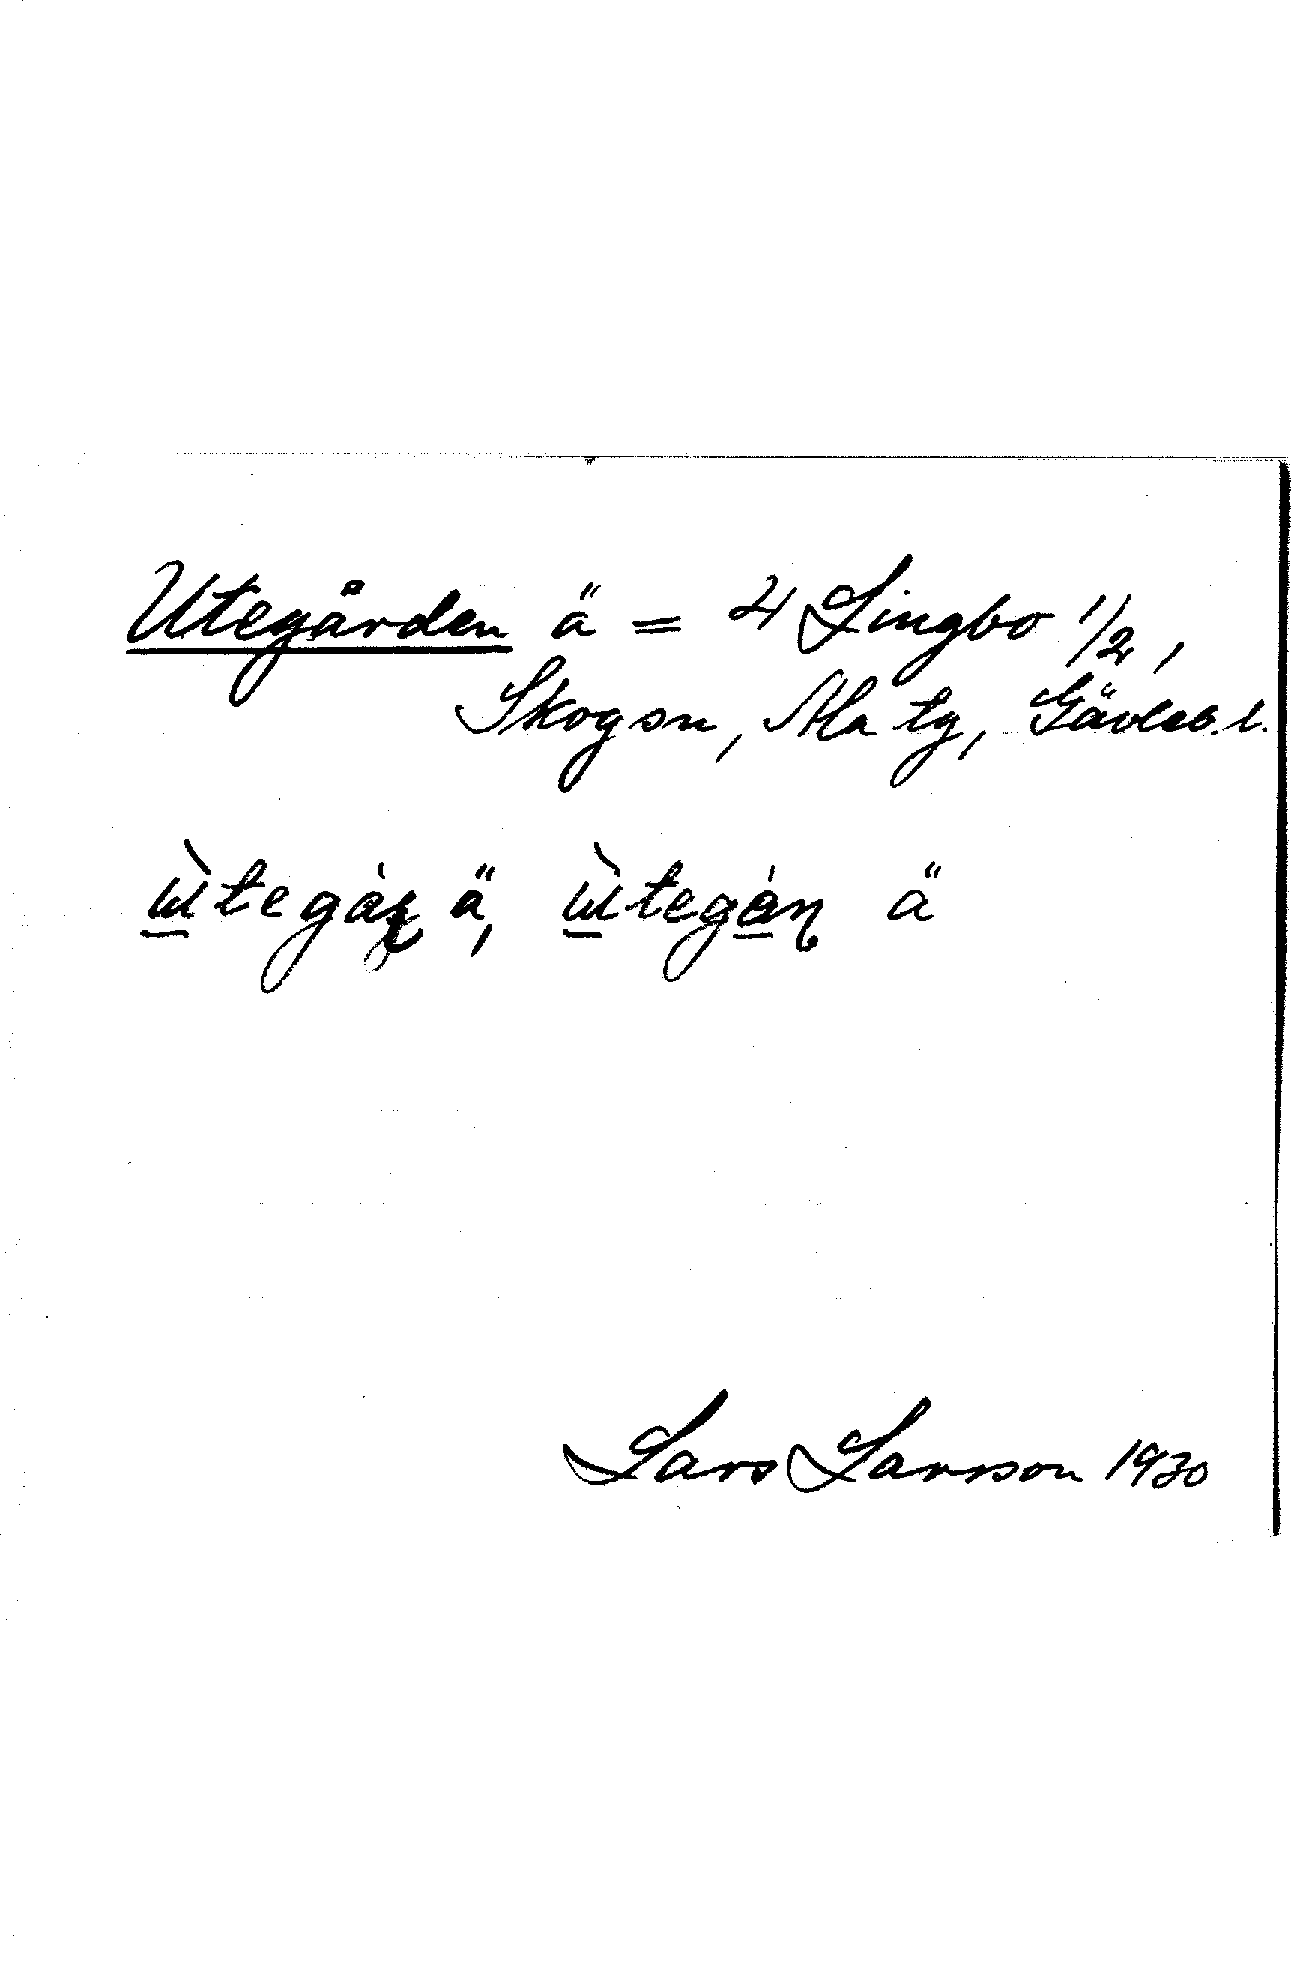 Utegården ä = 4 Lingbo 1/2,
Skogsn, Ala tg, Gävleb. l.
ɯ̀tegàṇ ä, ɯ̀tegàṇ ä
Lars Larsson 1930